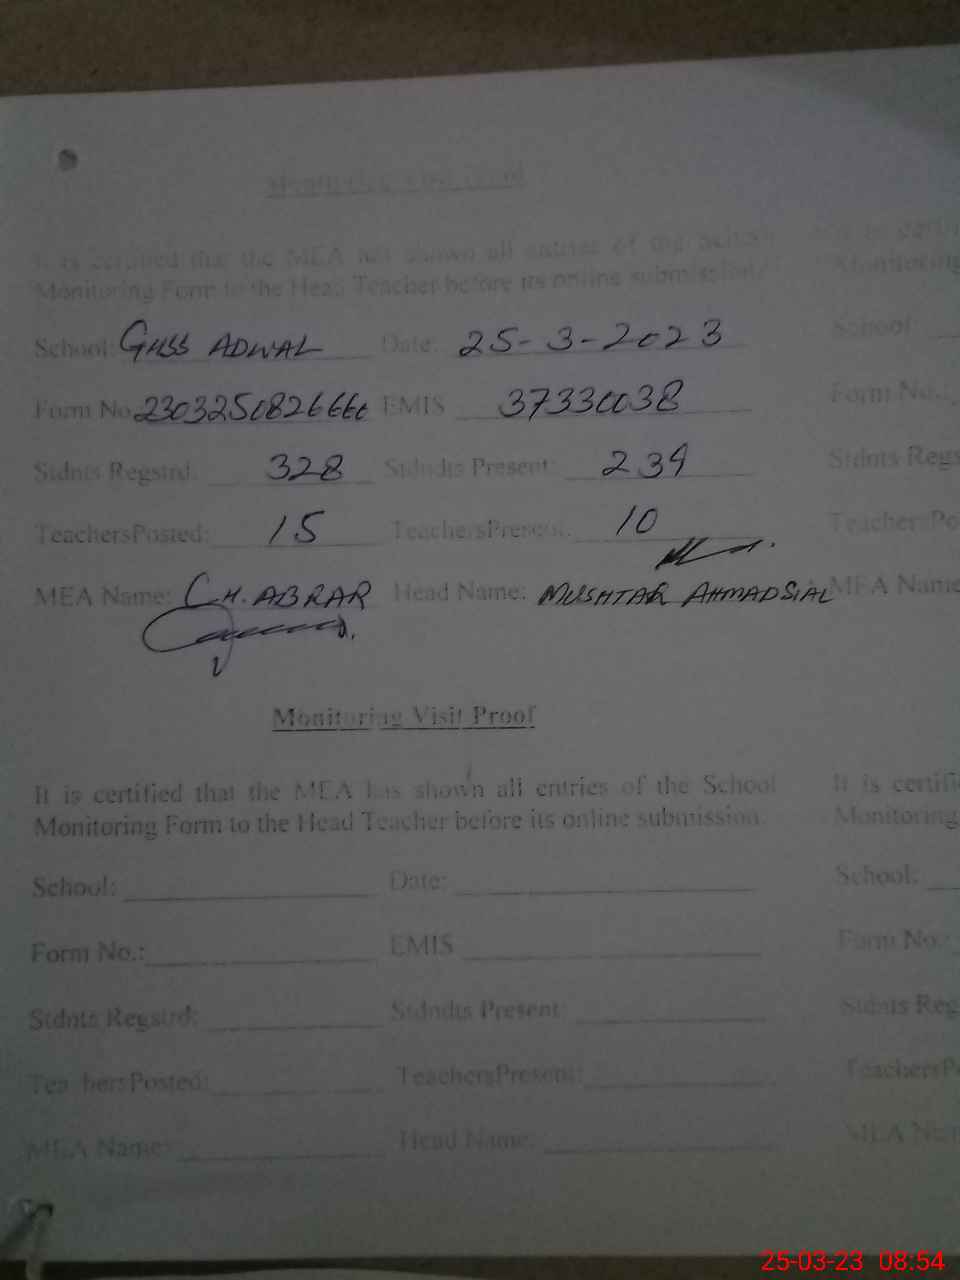 Monitoring Visit Proof
It is certified that the MEA has shown all entries of the School It is certifi
Monitoring Form to the Head Teacher before its online submission. Monitoring
School: GHSS ADWAL Date: 25-3-2023 School:
Form No. EMIS 37330038 Form No.:
Stdnts Regstrd: 328 Stdndts Present: 234 Stdnts Regs
TeachersPosted: 15 TeachersPresent: 10 TeachersPo
MEA Name: CH. ABRAR Head Name: MUSHTAR AHMAD SIAL MEA Name
Monitoring Visit Proof
It is certified that the MEA has shown all entries of the School It is certifi
Monitoring Form to the Head Teacher before its online submission. Monitoring
School: Date: School:
Form No.: EMIS Form No.:
Stdnts Regstrd: Stdndts Present: Stdnts Reg
TeachersPosted: TeachersPresent: TeachersP
MEA Name: Head Name: MEA Nam
25-03-23 08:54